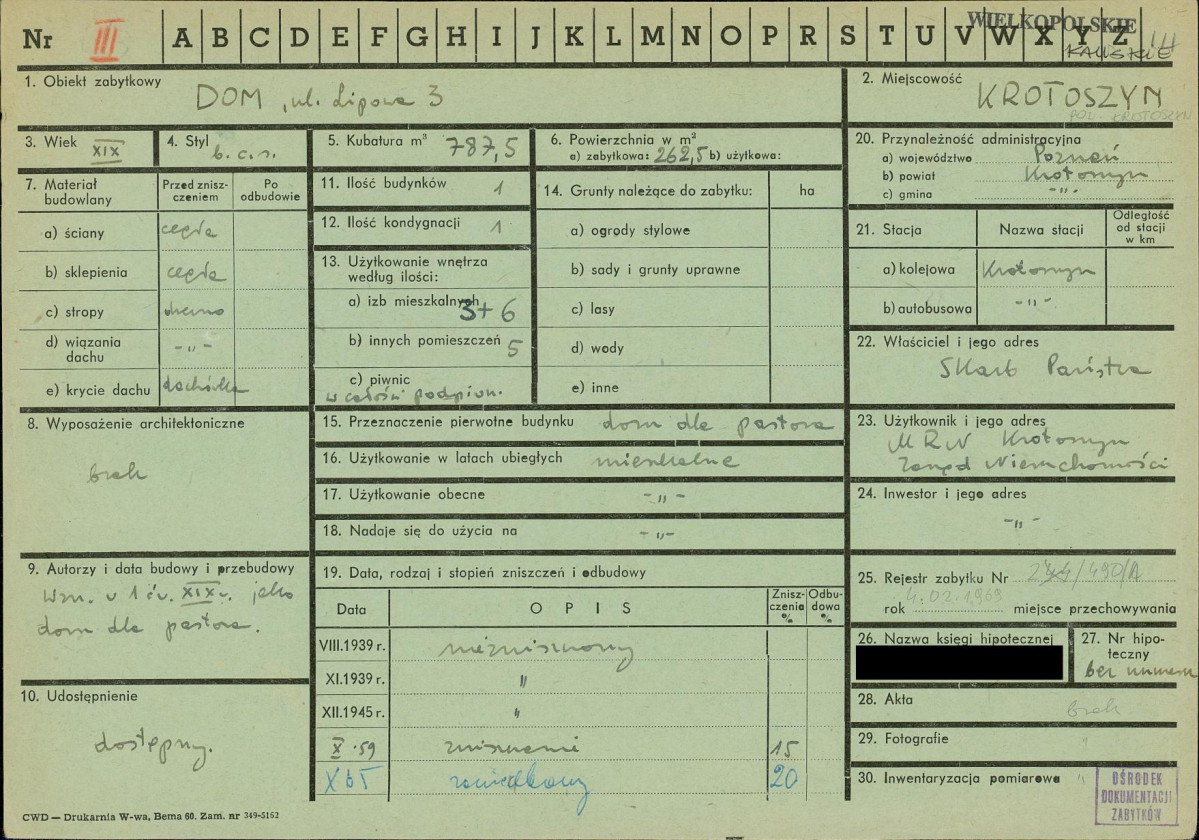 Nr III A B C D E F G H I J K L M N O P R S T U V W X Y Z
WIELKOPOLSKIE
KALISKIE
1. Obiekt zabytkowy
DOM, ul. Lipowa 3
2. Miejscowość
KROTOSZYN
POW. KROTOSZYN
3. Wiek XIX
4. Styl b.c.s.
5. Kubatura m³ 787,5
6. Powierzchnia w m²
a) zabytkowa: 262,5 b) użytkowa:
7. Materiał budowlany
Przed znisz-
czeniem
Po
odbudowie
a) ściany cegła
b) sklepienia cegła
c) stropy drewno
d) wiązania
dachu -„-
e) krycie dachu dachówka
8. Wyposażenie architektoniczne
brak
9. Autorzy i data budowy i przebudowy
Wzn. w 1 ćw. XIX w. jako
dom dla pastora.
10. Udostępnienie
dostępny.
11. Ilość budynków 1
12. Ilość kondygnacji 1
13. Użytkowanie wnętrza
według ilości:
a) izb mieszkalnych 3+6
b) innych pomieszczeń 5
c) piwnic
w całości podpiwn.
14. Grunty należące do zabytku: ha
a) ogrody stylowe
b) sady i grunty uprawne
c) lasy
d) wody
e) inne
15. Przeznaczenie pierwotne budynku dom dla pastora
16. Użytkowanie w latach ubiegłych mieszkalne
17. Użytkowanie obecne -„-
18. Nadaje się do użycia na -„-
19. Data, rodzaj i stopień zniszczeń i odbudowy
Data
OPIS
Znisz-
czenia
%
Odbu-
dowa
%
VIII.1939 r. niezniszczony
XI.1939 r. „
XII.1945 r. „
X.59 zniszczenie 15
X 65 zaniedbany 20
20. Przynależność administracyjna
a) województwo Poznań
b) powiat Krotoszyn
c) gmina -„-
21. Stacja
Nazwa stacji
Odległość
od stacji
w km
a) kolejowa Krotoszyn
b) autobusowa -„-
22. Właściciel i jego adres
Skarb Państwa
23. Użytkownik i jego adres
MRN Krotoszyn
Zarząd Nieruchomości
24. Inwestor i jego adres
-„-
25. Rejestr zabytku Nr /490/A
rok 4.02.1969 miejsce przechowywania
26. Nazwa księgi hipotecznej
27. Nr hipo-
teczny
bez numeru
28. Akta brak
29. Fotografie „
30. Inwentaryzacja pomiarowa „
OŚRODEK
DOKUMENTACJI
ZABYTKÓW
CWD — Drukarnia W-wa, Bema 60. Zam. nr 349-5162